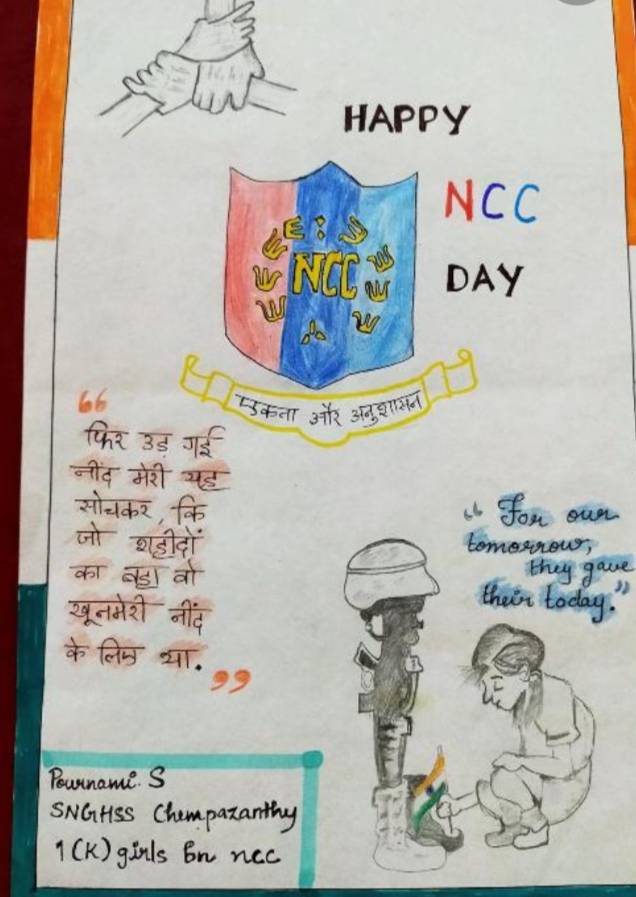 HAPPY
NCC
DAY
NCC
एकता और अनुशासन
“
फिर उड़ गई
नींद मेरी यह
सोचकर, कि
जो शहीदों
का बहा वो
खूनमेरी नींद
के लिए था.
”
“For our
tomorrow,
they gave
their today.”
Pournami. S
SNGHSS Chempazanthy
1(K) girls bn ncc